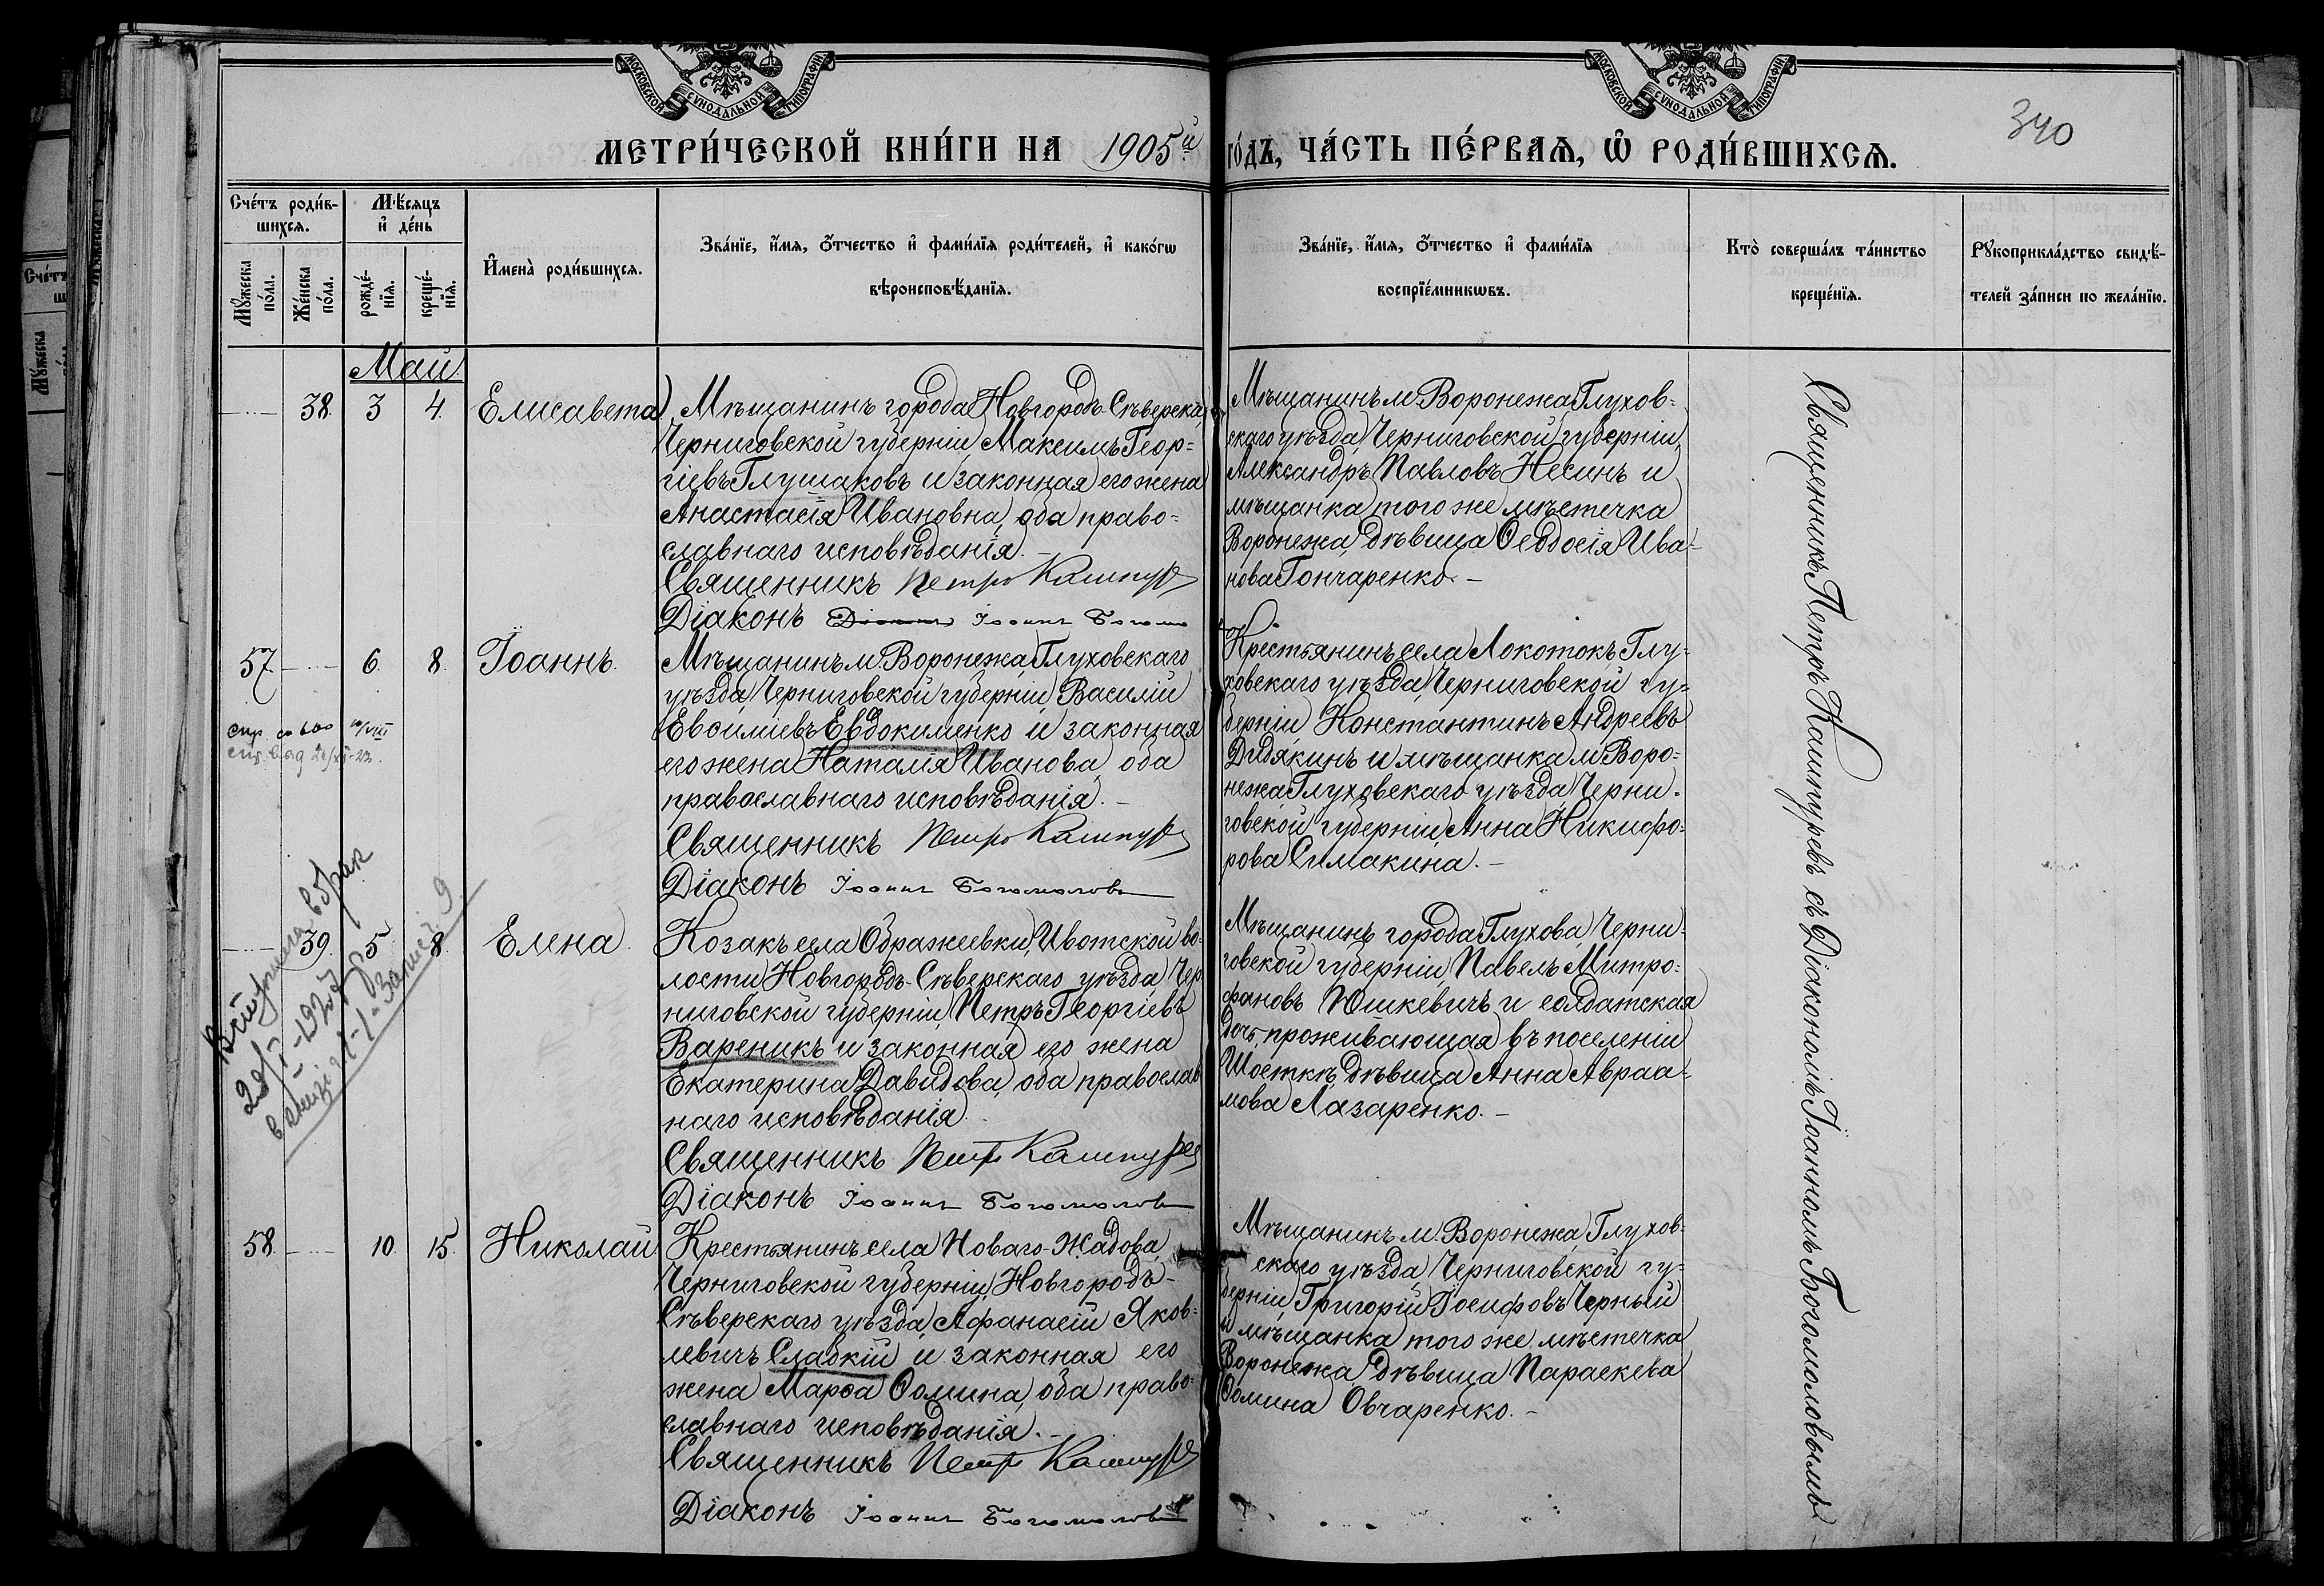 МОСКОВСКОЙ СѴНОДАЛЬНОЙ ТИПОГРАФІИ
МОСКОВСКОЙ СѴНОДАЛЬНОЙ ТИПОГРАФІИ
340
МЕТРИ́ЧЕСКОЙ КНИ́ГИ НА 1905й
го́дъ, ЧА́СТЬ ПЕ́РВАѦ, Ѡ҆ РОДИ́ВШИХСѦ.
Сче́тъ роди́в-
шихсѧ.
Мѣ́сяцъ
и҆ де́нь
Мꙋ́жеска
по́ла.
Же́нска
по́ла.
рожде́-
нїѧ.
креще́-
нїѧ.
И҆мена̀ роди́вшихсѧ.
Зва́нїе, и҆́мѧ, ѻ҆́тчество и҆ фами́лїѧ роди́телей, и҆ како́гѡ
вѣроисповѣ́данїѧ.
Зва́нїе, и҆́мѧ, ѻ҆́тчество и҆ фами́лїѧ
воспрїе́мникѡвъ.
Кто̀ соверша́лъ та́инство
креще́нїѧ.
Рꙋкоприкла́дство свидѣ́-
телей за́писи по жела́нїю.
Май
38. 3 4. Елисавета
Мѣщанинъ города Новгородъ-Сѣверска,
Черниговской губерніи, Максимъ Геор=
гіевъ Глушаковъ и законная его жена
Анастасія Ивановна, оба право=
славнаго исповѣданія.
Священникъ Петръ Кашпуревъ
Діаконъ Іоаннъ Богомо
Мѣщанинъ м. Воронежа, Глухов=
скаго уѣзда, Черниговской губерніи,
Александръ Павловъ Несинъ и
мѣщанка того же мѣстечка
Воронежа, дѣвица Ѳеодосія Ива-
нова Гончаренко.
57 6. 8. Іоаннъ.
Мѣщанинъ м. Воронежа, Глуховскаго
уѣзда, Черниговской губерніи, Василій
Евѳиміевъ Евдокименко и законная
его жена Наталія Иванова, оба
православнаго исповѣданія.
Священникъ Петръ Кашпуревъ
Діаконъ Іоаннъ Богомоловъ
Крестьянинъ села Локотокъ, Глу=
ховскаго уѣзда, Черниговской гу=
берніи Константинъ Андреевъ
Дидякинъ и мѣщанка м. Воро=
нежа Глуховскаго уѣзда, Черни=
говской губерніи, Анна Никифо=
рова Симакина.
39. 5 8. Елена.
Козакъ села Ображеевки, Ивотской во-
лости, Новгородъ-Сѣверскаго уѣзда, Чер
ниговской губерніи, Петръ Георгіевъ
Вареникъ и законная его жена
Екатерина Давидова, оба православ
наго исповѣданія.
Священникъ Петръ Кашпуревъ
Діаконъ Іоаннъ Богомоловъ
Мѣщанинъ города Глухова, Черни=
говской губерніи, Павелъ Митро=
фановъ Юшкевичъ и солдатская
дочь, проживающая въ поселеніи
Шосткѣ, дѣвица Анна Авраа=
мова Лазаренко.
Вступила в брак
58. 10. 15. Николай
Крестьянинъ села Новаго-Жадова,
Черниговской губерніи, Новгородъ-
Сѣверскаго уѣзда, Афанасій Яков=
левичъ Сладкій и законная его
жена Марѳа Ѳомина, оба право=
славнаго исповѣданія.
Священникъ Петръ Кашпуревъ
Діаконъ Іоаннъ Богомоловъ
Мѣщанинъ м. Воронежа, Глухов=
скаго уѣзда, Черниговской гу=
берніи, Григорій Іосифовъ Черный
и мѣщанка того же мѣстечка
Воронежа, дѣвица Параскева
Ѳомина Овчаренко.
Священникъ Петръ Кашпуревъ съ Діакономъ Іоанномъ Богомоловымъ